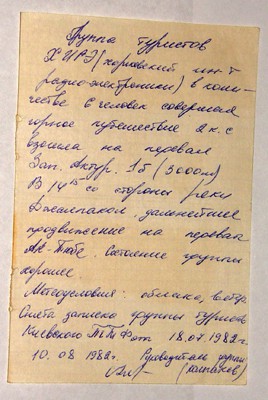 Группа туристов
ХИРЭ (харьковский ин-т
радио-электроники) в коли-
честве 6 человек совершая
горное путешествие 2 к. с
взошла на перевал
Зап. Актур. 1б (3000м)
В 14¹⁵ со стороны реки
Джалпакол. дальнейшее
продвижение на перевал
Ак-Тюбе. Состояние группы
хорошее.
Метеоусловия: облака, ветр
Снята записка группы туристов
Киевского от 18.07.1982г.
10.08 1982г. Руководитель группы